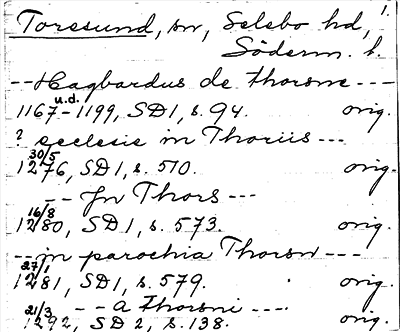 Toresund, sn, Selebo hd, 1.
Söderm. l.
-- Hagbardus de Thorsne ---
u.d.
1167-1199, SD1, s. 94. orig.
? ecclesie in Thoriis ---
30/5
1276, SD1, s. 510. orig.
-- Jn Thors ---
16/8
1280, SD1, s. 573. orig.
-- in parochia Thorsn ---
27/1
1281, SD1, s. 579. orig.
21/3 -- a Thorsni ----
1292, SD2, s. 138. orig.